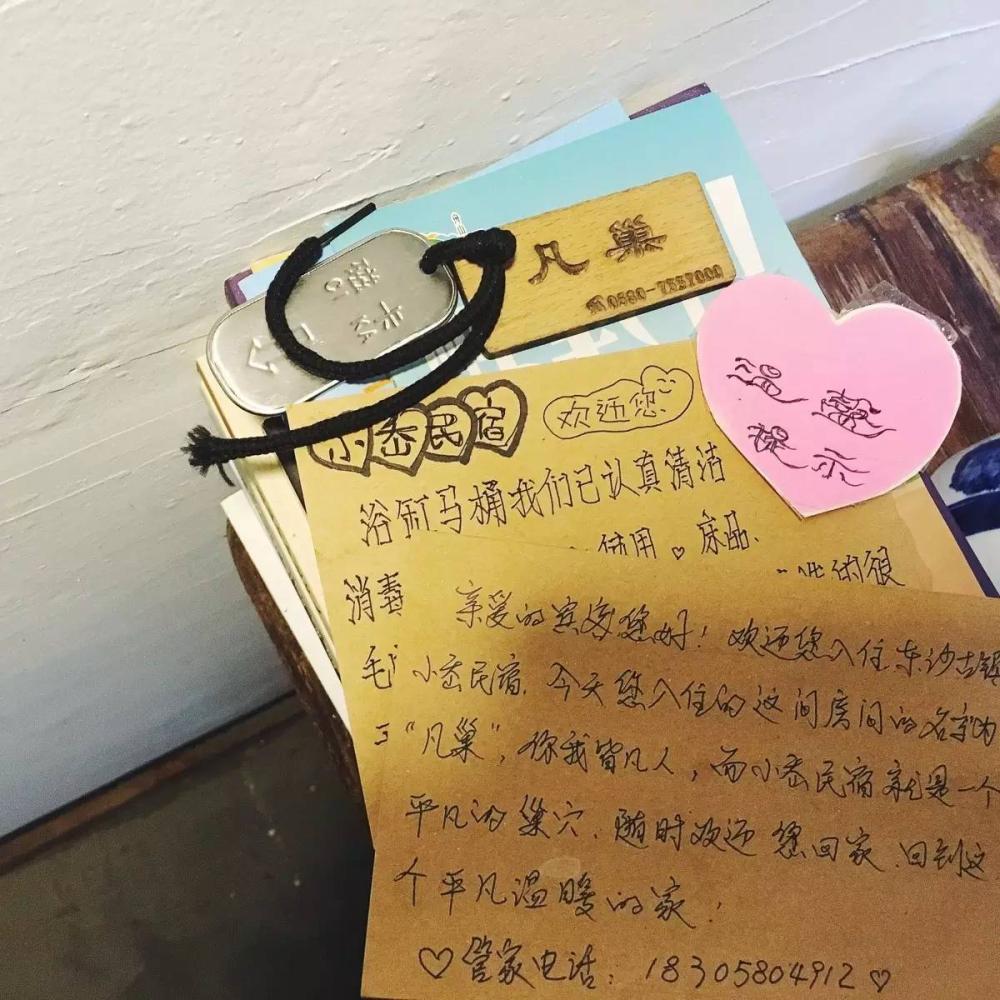 凡巢
☎0580-7557000
温馨
提示
小岙民宿 欢迎您
浴缸马桶我们已认真清洁
消毒 使用。床品、
毛
亲爱的宾客您好！欢迎您入住东沙古镇
小岙民宿.今天您入住的这间房间的名字为
“凡巢”，你我皆凡人，而小岙民宿就是一个
平凡的巢穴.随时欢迎您回家.回到这
个平凡温暖的家！
♡管家电话：18305804912♡